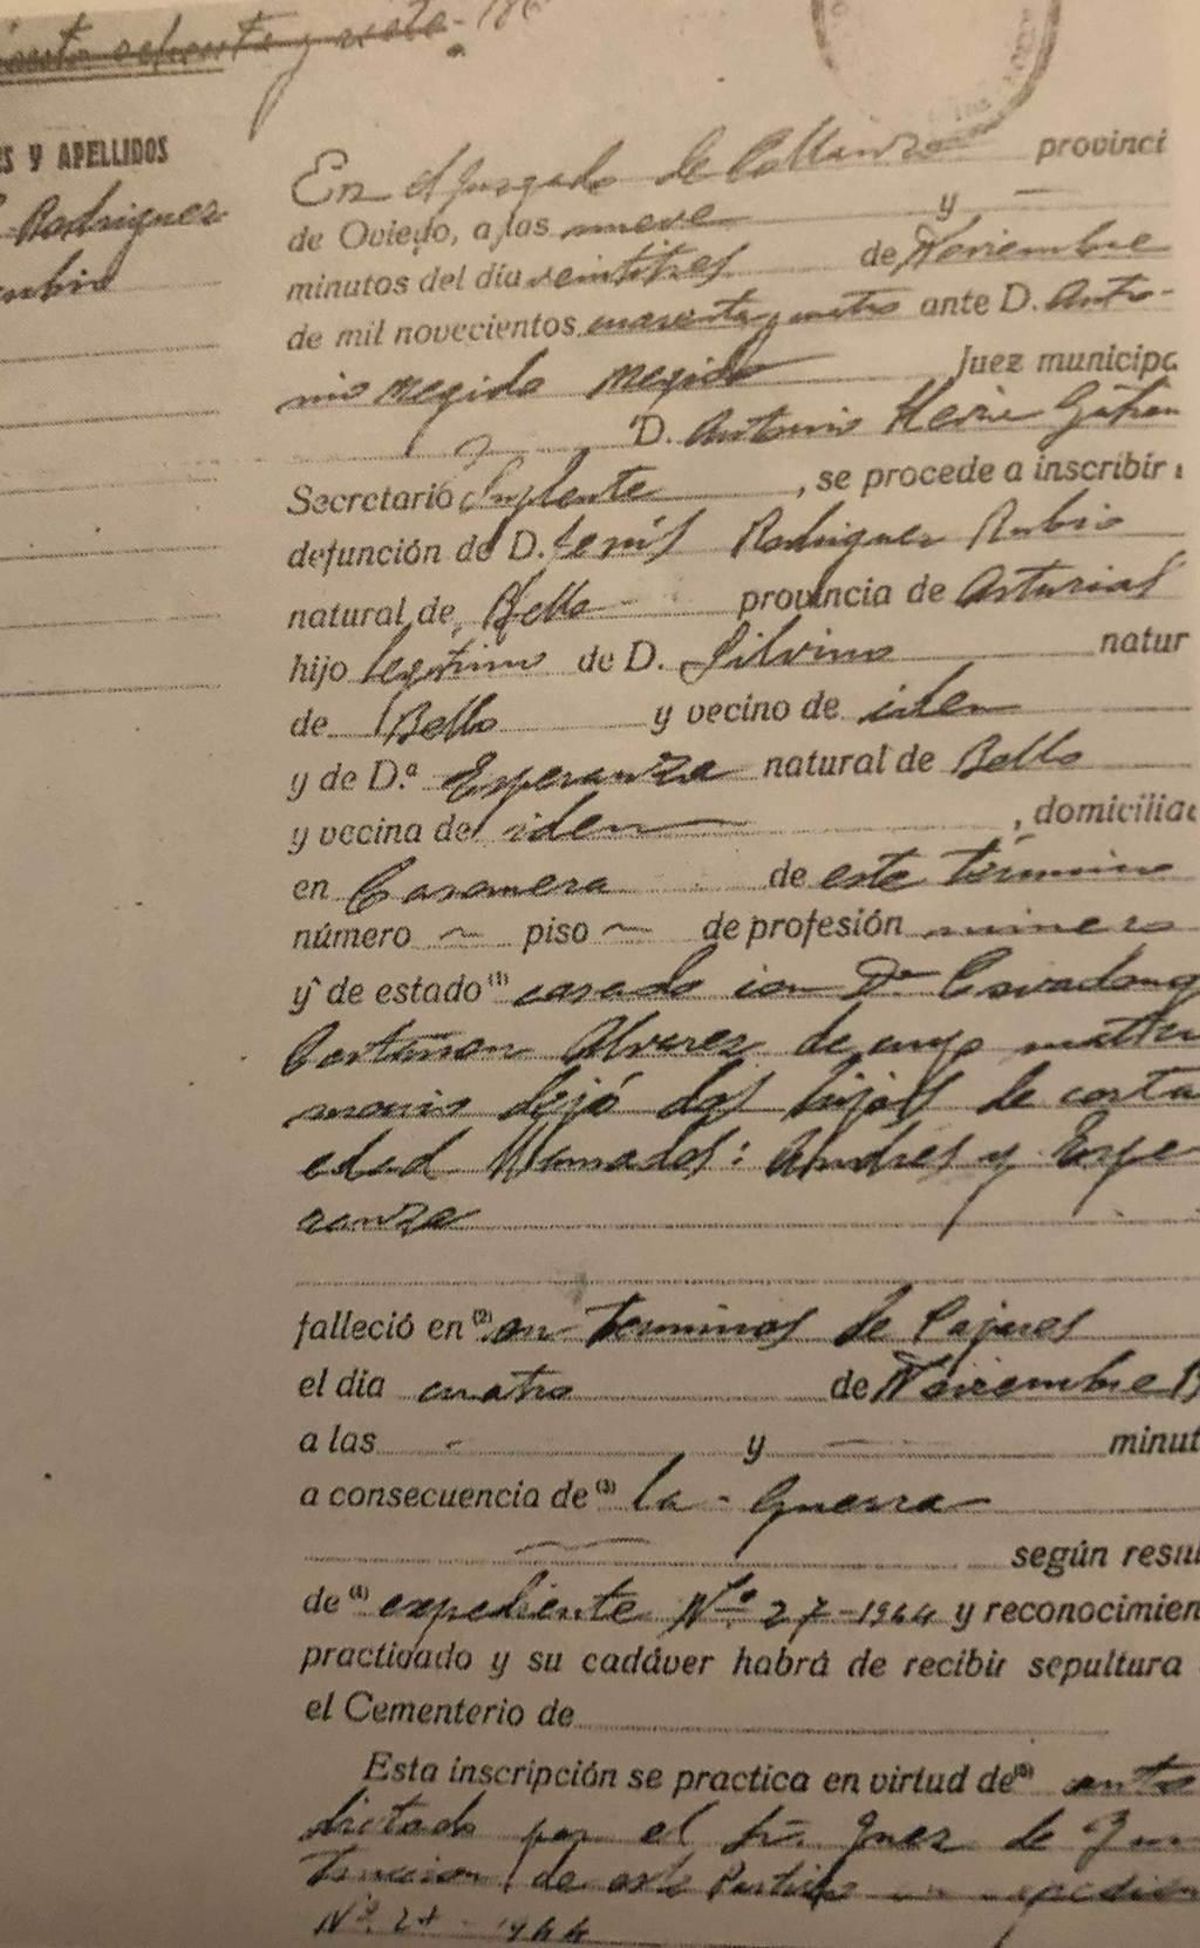 ES Y APELLIDOS
Rodriguez
En el Juzgado de Collanzo provinci
de Oviedo, a las nueve y —
minutos del día veintitres de Noviembre
de mil novecientos cuarenta y cuatro ante D. Anto-
nio Megido Megido Juez municipa
D. Antonio
Secretario Suplente, se procede a inscribir
defunción de D. Jesús Rodriguez Rubio
natural de Bello provincia de Asturias
hijo legítimo de D. Silvino natur
de Bello y vecino de iden
y de D.ª Esperanza natural de Bello
y vecina de iden, domicilia
en Casomera de este término
número ~ piso ~ de profesión minero
y de estado (1) casado con Dª Covadong
Castañon Alvarez de cuyo matri
monio dejó dos hijos de corta
edad llamados: Andres y Espe
ranza
falleció en (2) en terminos de Pajares
el día cuatro de Noviembre 19
a las - y — minut
a consecuencia de (3) la - Guerra
según resul
de (4) expediente Nº 27-1944 y reconocimien
practicado y su cadáver habrá de recibir sepultura
el Cementerio de
Esta inscripción se practica en virtud de (5) auto
dictado por el Sr. Juez de Yns
truccion de este Partido en expedien
Nº 27 - 1944